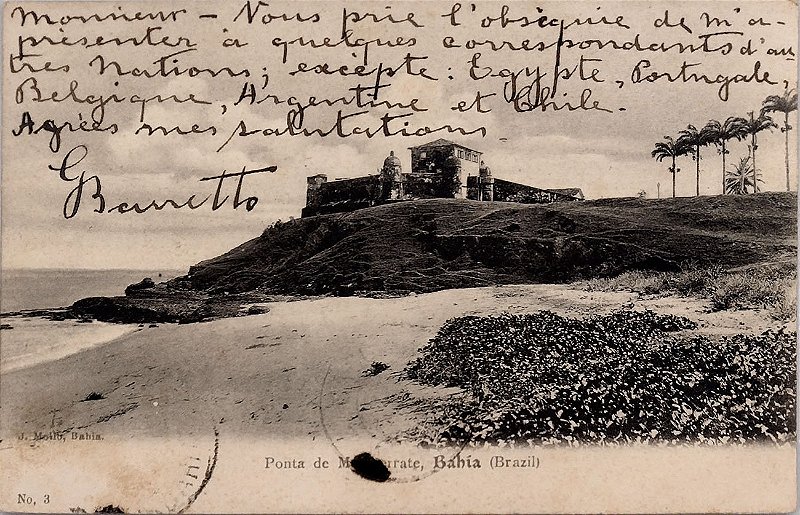 Monsieur – Vous prie l'obséquie de m'a-
présenter à quelques correspondants d'au
tres Nations; excépte: Egypte, Portugale,
Belgique, Argentine et Chile.
Agrées mes salutations
GBarretto
J. Mello, Bahia.
Ponta de Bahia (Brazil)
No, 3